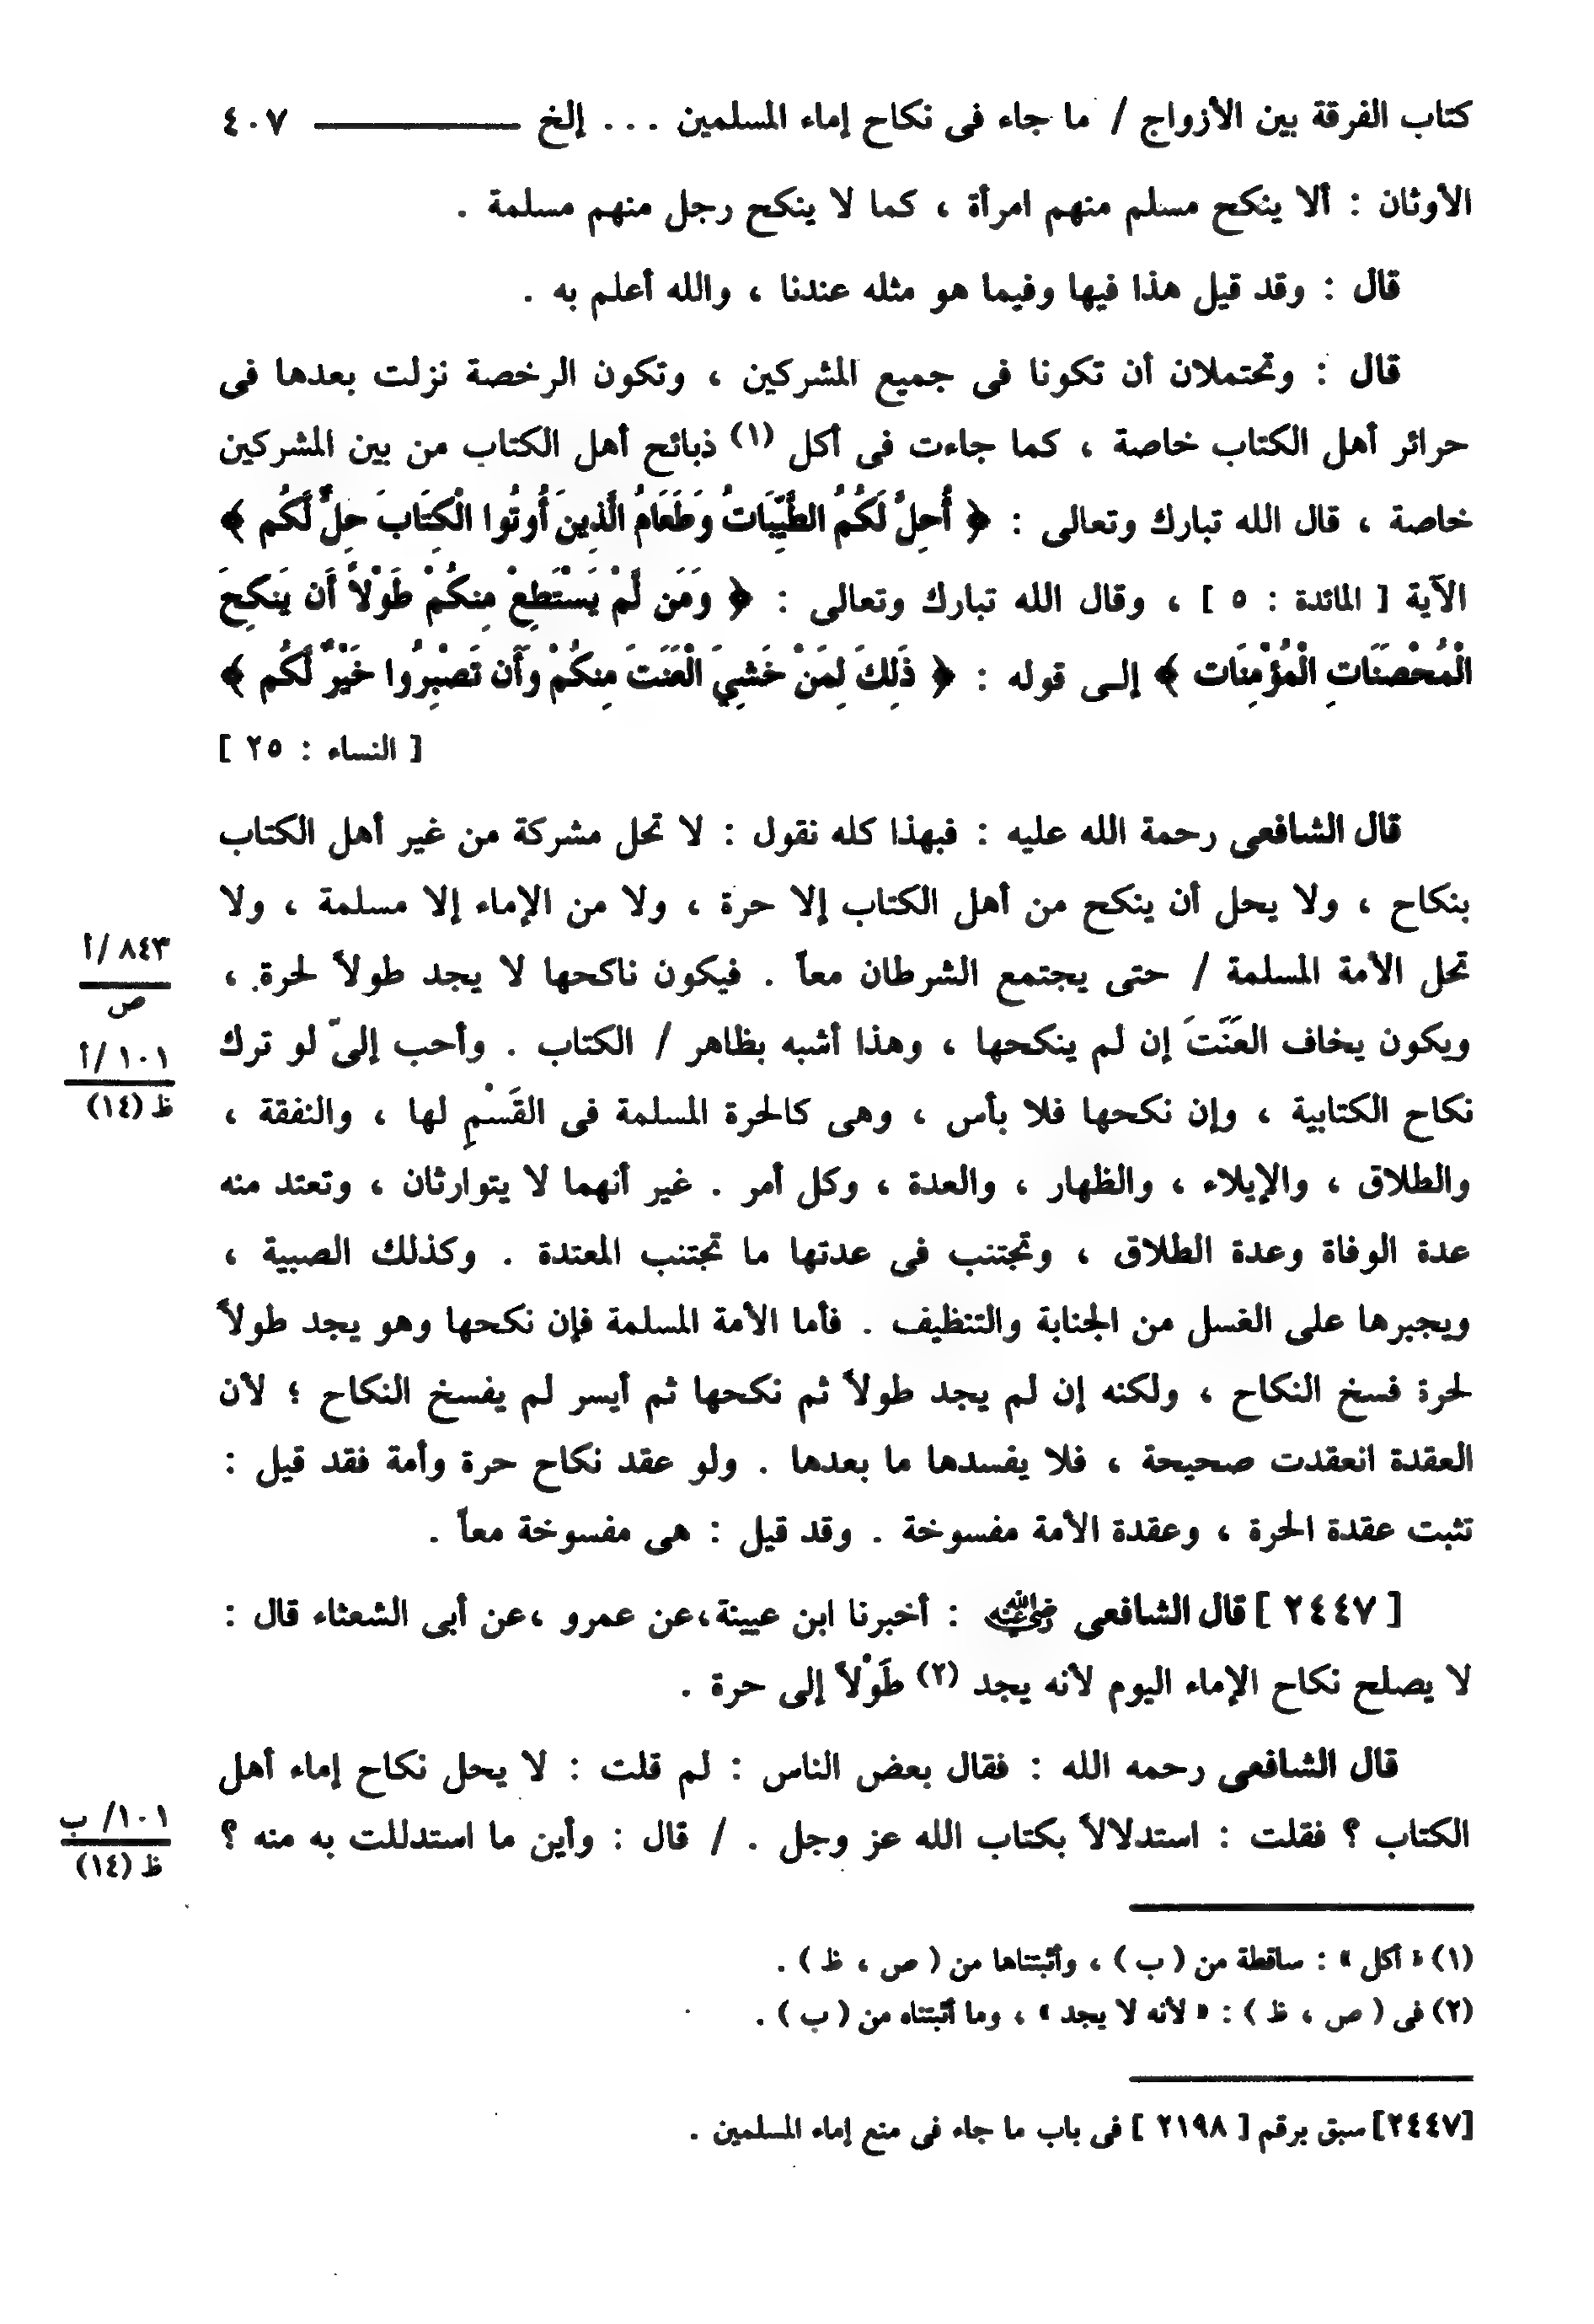 كتاب الفرقة بين الأزواج / ما جاء فى نكاح إماء المسلمين ... إلخ ــــــــــ ٤٠٧
الأوثان : ألا ينكح مسلم منهم امرأة ، كما لا ينكح رجل منهم مسلمة .
قال : وقد قيل هذا فيها وفيما هو مثله عندنا ، والله أعلم به .
قال : وتحتملان أن تكونا فى جميع المشركين ، وتكون الرخصة نزلت بعدها فى
حرائر أهل الكتاب خاصة ، كما جاءت فى أكل (١) ذبائح أهل الكتاب من بين المشركين
خاصة ، قال الله تبارك وتعالى : ﴿ أُحِلَّ لَكُمُ الطَّيِّبَاتُ وَطَعَامُ الَّذِينَ أُوتُوا الْكِتَابَ حِلٌّ لَّكُم ﴾
الآية [ المائدة : ٥ ] ، وقال الله تبارك وتعالى : ﴿ وَمَن لَّمْ يَسْتَطِعْ مِنكُمْ طَوْلاً أَن يَنكِحَ
الْمُحْصَنَاتِ الْمُؤْمِنَات ﴾ إلـى قوله : ﴿ ذَلِكَ لِمَنْ خَشِيَ الْعَنَتَ مِنكُمْ وَأَن تَصْبِرُوا خَيْرٌ لَّكُم ﴾
[ النساء : ٢٥ ]
قال الشافعى رحمة الله عليه : فبهذا كله نقول : لا تحل مشركة من غير أهل الكتاب
بنكاح ، ولا يحل أن ينكح من أهل الكتاب إلا حرة ، ولا من الإماء إلا مسلمة ، ولا
تحل الأمة المسلمة / حتى يجتمع الشرطان معاً . فيكون ناكحها لا يجد طولاً لحرة ،
٨٤٣ /أ
ص
ويكون يخاف العَنَتَ إن لم ينكحها ، وهذا أشبه بظاهر / الكتاب . وأحب إلىّ لو ترك
١٠١ /أ
ظ (١٤)
نكاح الكتابية ، وإن نكحها فلا بأس ، وهى كالحرة المسلمة فى القَسْمِ لها ، والنفقة ،
والطلاق ، والإيلاء ، والظهار ، والعدة ، وكل أمر . غير أنهما لا يتوارثان ، وتعتد منه
عدة الوفاة وعدة الطلاق ، وتجتنب فى عدتها ما تجتنب المعتدة . وكذلك الصبية ،
ويجبرها على الغسل من الجنابة والتنظيف . فأما الأمة المسلمة فإن نكحها وهو يجد طولاً
لحرة فسخ النكاح ، ولكنه إن لم يجد طولاً ثم نكحها ثم أيسر لم يفسخ النكاح ؛ لأن
العقدة انعقدت صحيحة ، فلا يفسدها ما بعدها . ولو عقد نكاح حرة وأمة فقد قيل :
تثبت عقدة الحرة ، وعقدة الأمة مفسوخة . وقد قيل : هى مفسوخة معاً .
[ ٢٤٤٧ ] قال الشافعى رضي الله عنه : أخبرنا ابن عيينة،عن عمرو ،عن أبى الشعثاء قال :
لا يصلح نكاح الإماء اليوم لأنه يجد (٢) طَوْلاً إلى حرة .
قال الشافعى رحمه الله : فقال بعض الناس : لم قلت : لا يحل نكاح إماء أهل
الكتاب ؟ فقلت : استدلالاً بكتاب الله عز وجل . / قال : وأين ما استدللت به منه ؟
١٠١/ ب
ظ (١٤)
(١) « أكل » : ساقطة من ( ب ) ، وأثبتناها من ( ص ، ظ ) .
(٢) فى ( ص ، ظ ) : « لأنه لا يجد » ، وما أثبتناه من ( ب ) .
[٢٤٤٧] سبق برقم [ ٢١٩٨ ] فى باب ما جاء فى منع إماء المسلمين .